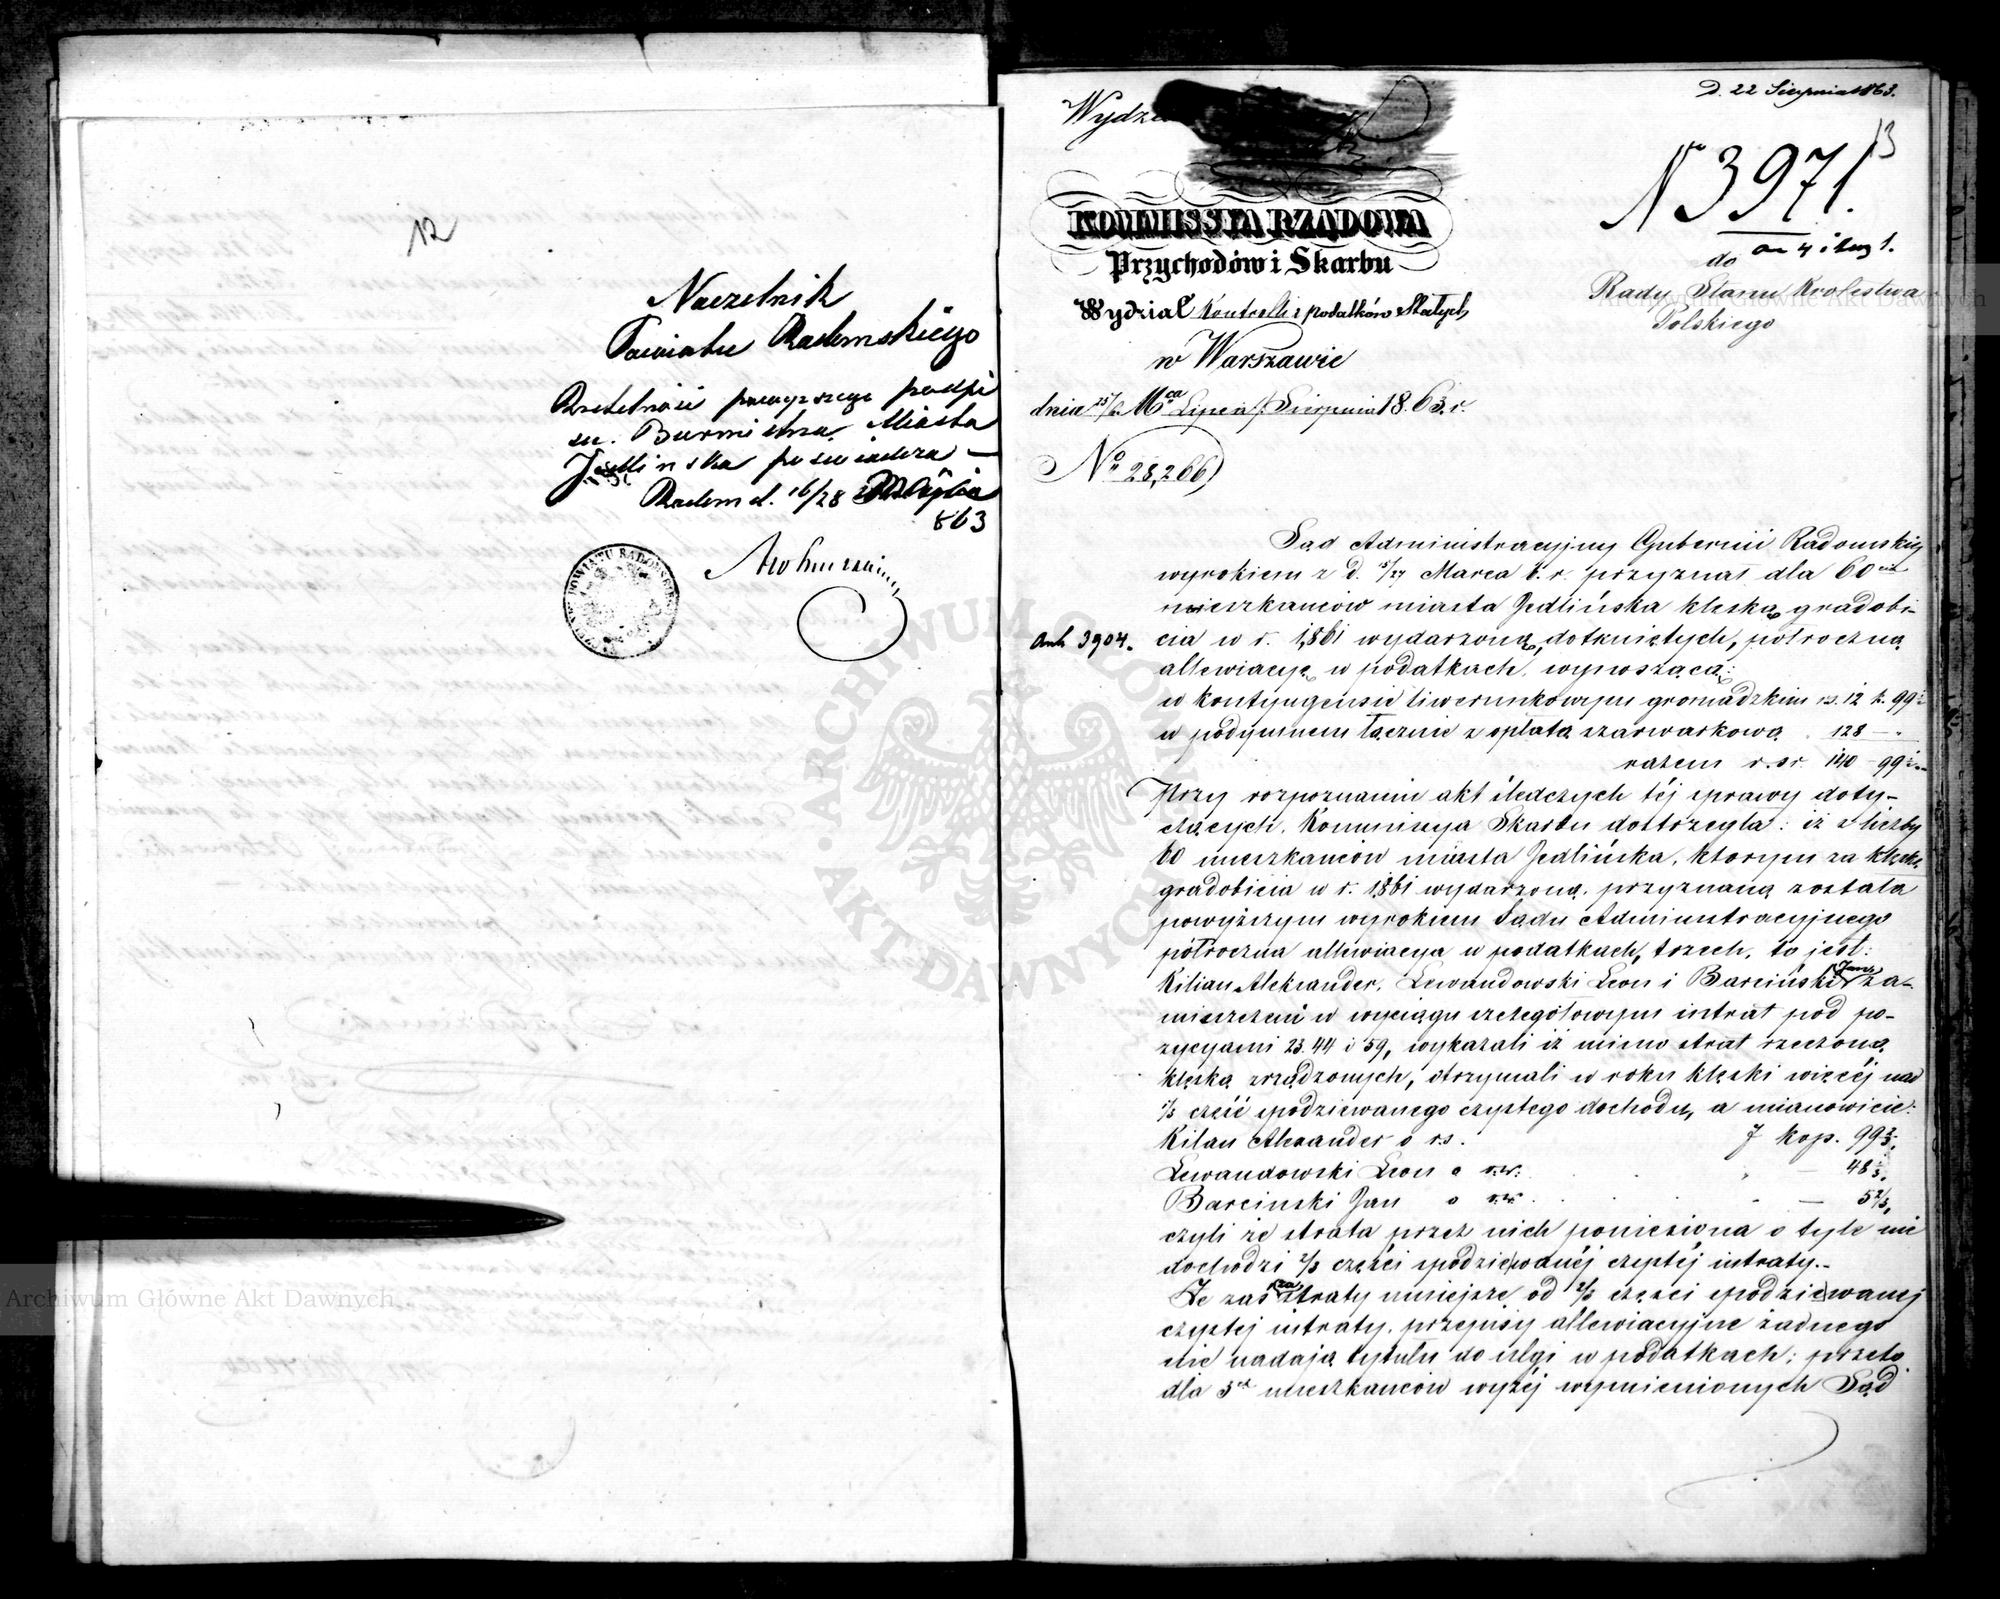 12
Naczelnik
Powiatu Radomskiego
Rzetelność powyższego podpi
su Burmistrza Miasta
Jedlińska poświadcza —
Radom d. 16/28
863
POWIATU RADOMSKIEGO
D. 22 Sierpnia 1863.
13
Wydz
N 3971.
KOMMISSYA RZĄDOWA
Przychodów i Skarbu
do
Rady Stanu Krolestwa
Polskiego
Wydział Kontroli i podatków Stałych
w Warszawie
dnia 25/6 Mca Lipca/Sierpnia 1863 r.
No 28,266
Sąd Administracyjny Gubernii Radomskiej
wyrokiem z d. 15/27 Marca b. r. przyznał dla 60ciu
mieszkańców miasta Jedlińska klęską gradobi-
3904.
cia w r. 1861 wydarzoną, dotkniętych, półroczną
allewiacyę w podatkach, wynoszącą:
w kontyngensie liwerunkowym gromadzkim rs. 12 k. 99½
w podymnem łącznie z opłatą szarwarkową . 128 — "
razem r. sr. 140 — 99½
Przy rozpoznaniu akt śledczych téj sprawy doty-
czących, Kommissya Skarbu dostrzegła: iż z liczby
60 mieszkańców miasta Jedlińska, ktorym za klęskę
gradobicia w r. 1861 wydarzoną, przyznaną została
powyższym wyrokiem Sądu Administracyjnego
półroczna allewiacya w podatkach, trzech, to jest:
Kilian Alexander, Lewandowski Leon i Barciński Jan za-
mieszczeni w wyciągu szczegółowym intrat pod po-
zycyami 23. 44 i 59, wykazali iż mimo strat rzeczoną
klęską zrządzonych, otrzymali w roku klęski więcéj nad
⅓ część spodziewanego czystego dochodu, a mianowicie:
Kilan Alexander o r.s. 7 kop. 99⅔,
Lewandowski Leon o r.s. . . " — 48⅓,
Barcinski Jan o r.s. . . . " — 5⅔,
czyli że strata przez nich poniesiona o tyle nie
dochodzi ⅔ części spodziewanéj czystéj intraty.-
Że zaś za straty mniejsze od ⅔ części spodziewanej
czystej intraty, przepisy allewiacyjne żadnego
nie nadają tytułu do ulgi w podatkach; przeto
dla 3ch mieszkańców wyżéj wymienionych Sąd
ARCHIWUM GŁÓWNE AKT DAWNYCH
Archiwum Główne Akt Dawnych
Archiwum Główne Akt Dawnych